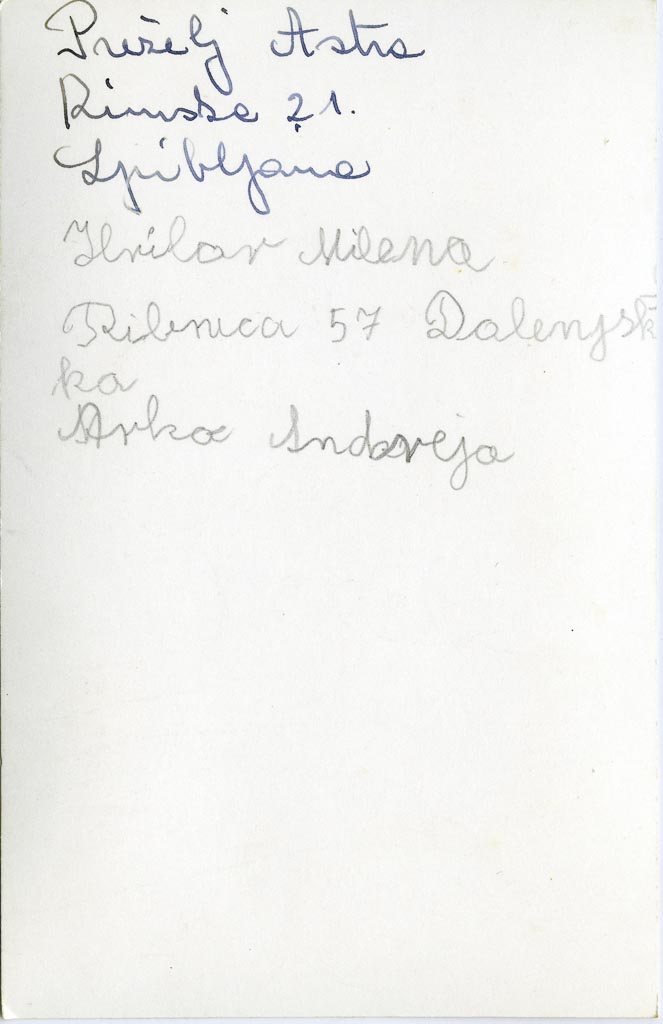 Preželj Astra
Rimska 21.
Ljubljana
Hrilar Milena
Ribnica 57 Dalenjsk
ka
Arko Andreja